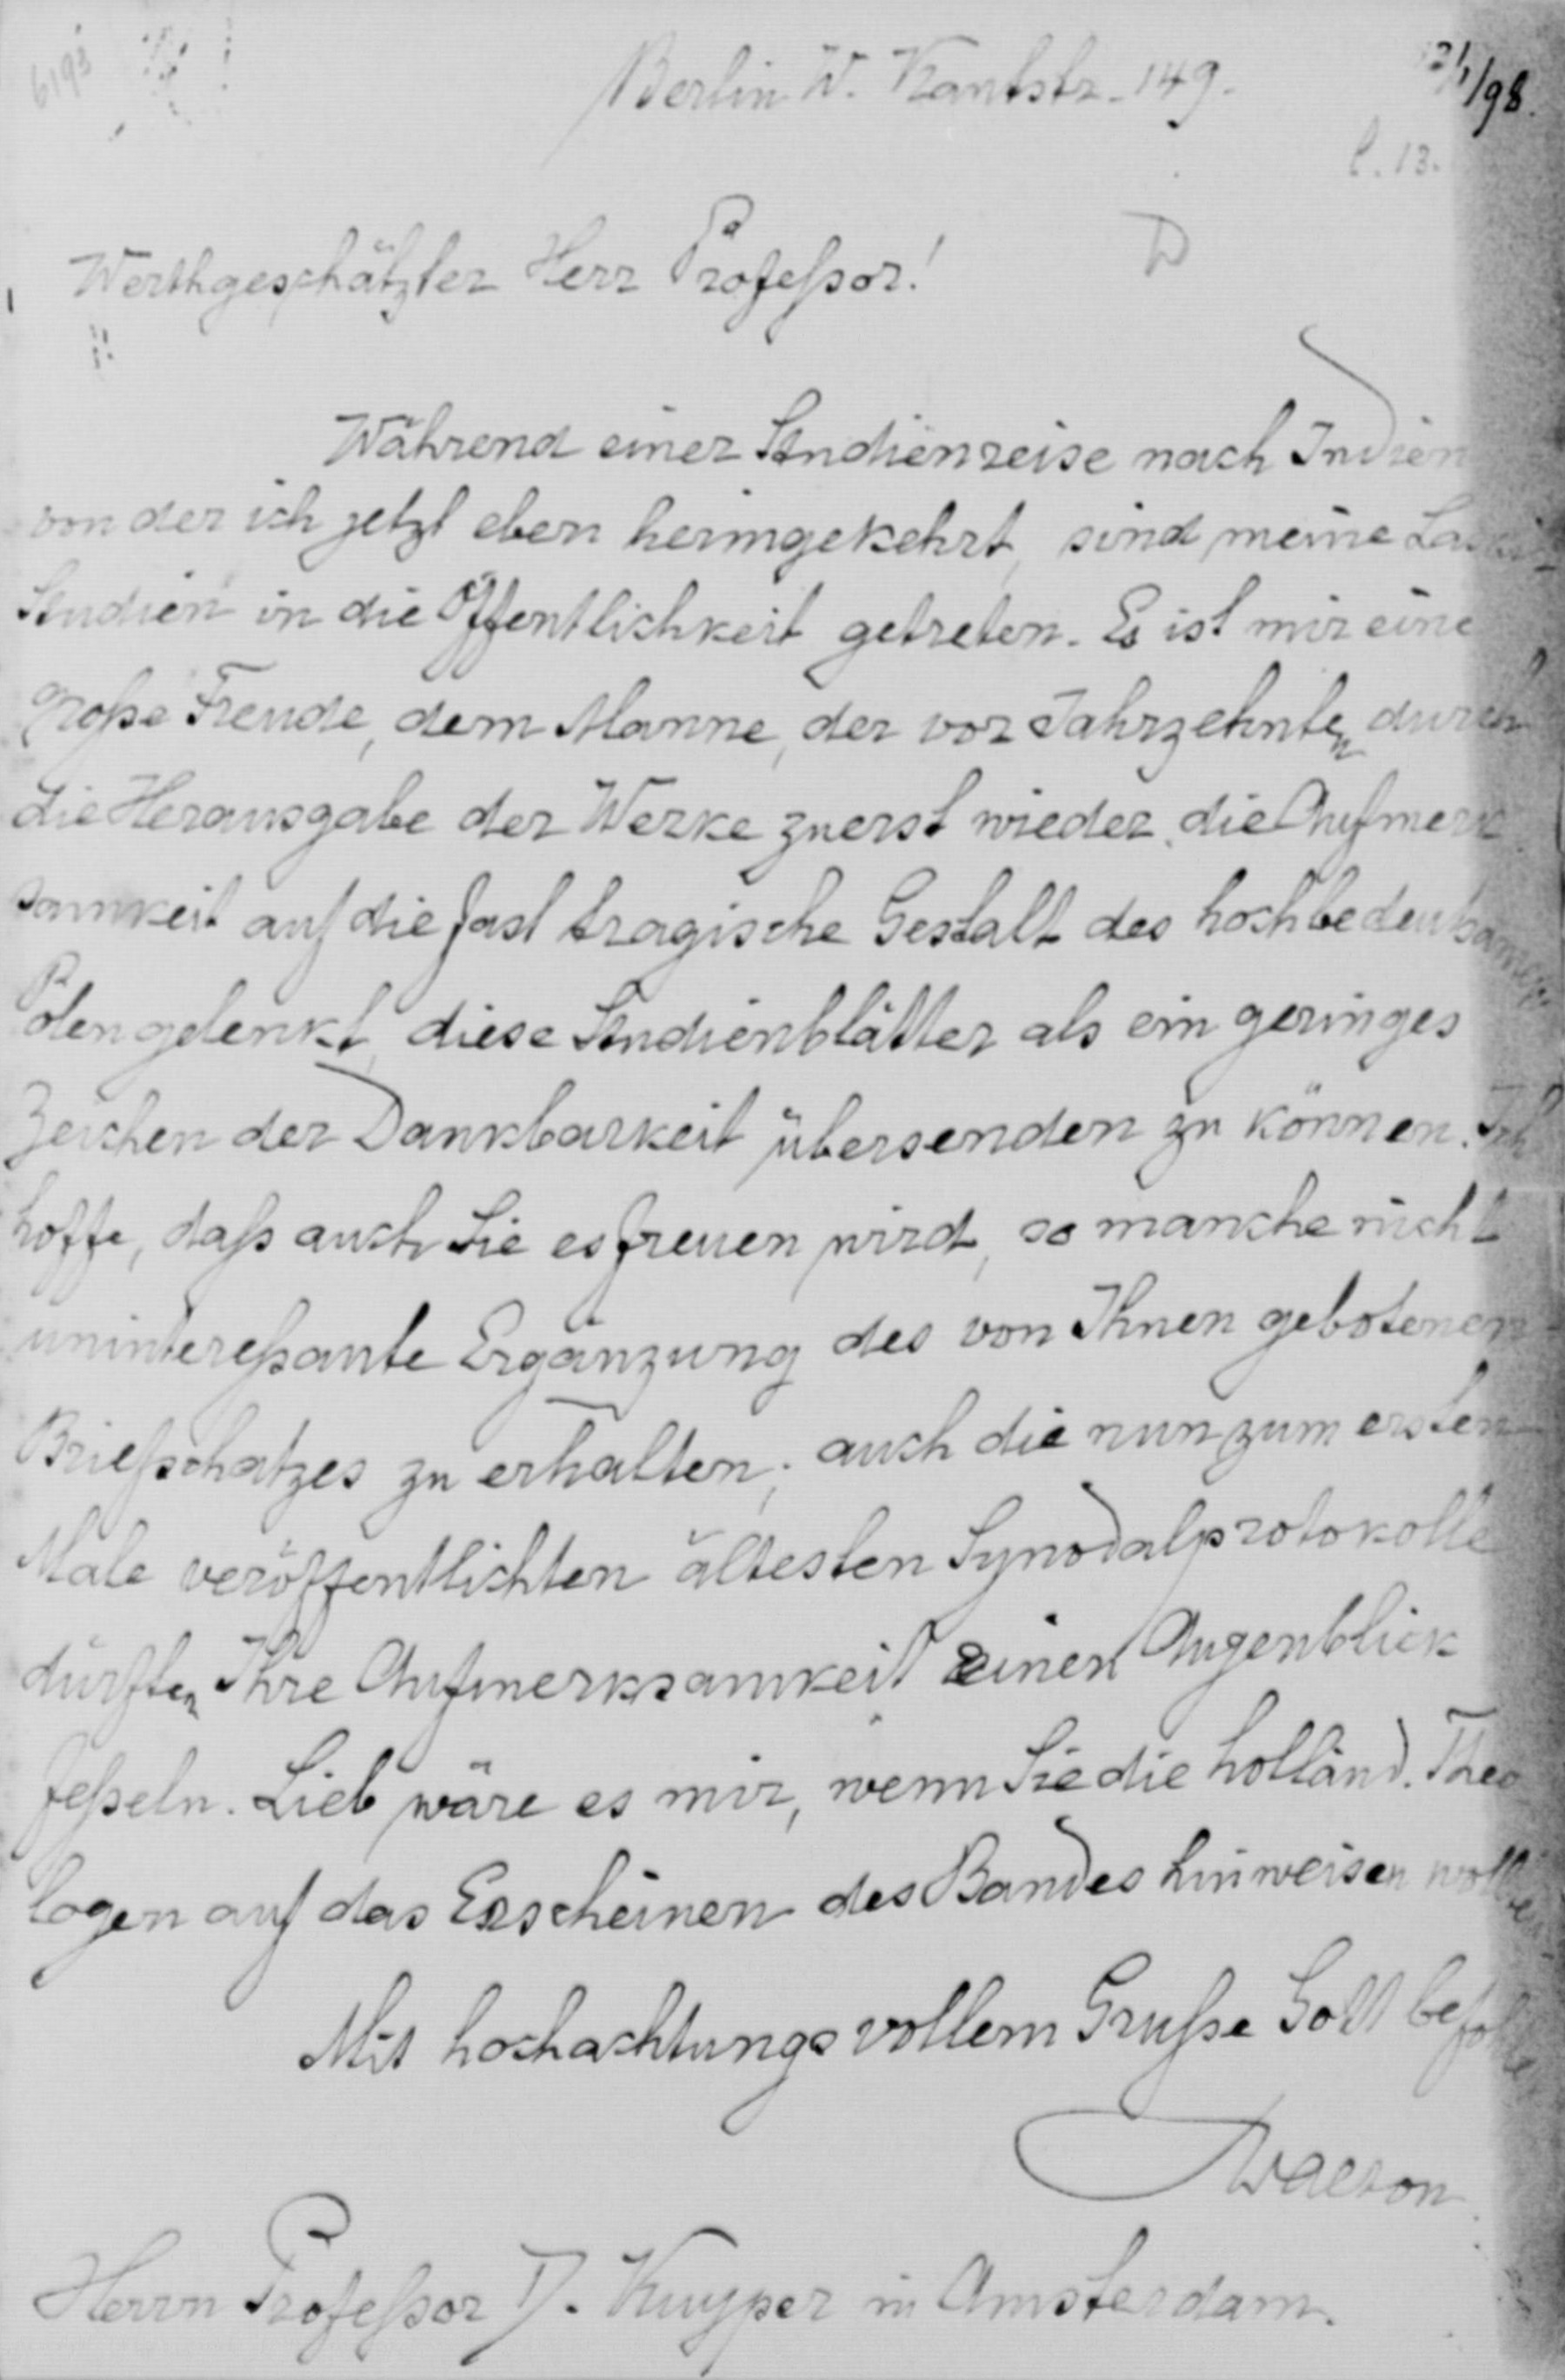 6193
Berlin W. Kantstr. 149.
/98.
l. 13.
D
Werthgeschätzter Herr Profeßor!
Während einer Studienreise nach Indien
von der ich jetzt eben heimgekehrt, sind meine
Studien in die Öffentlichkeit getreten. Es ist mir eine
große Freude, dem Manne, der vor Jahrzehnten durch
die Herausgabe der Werke zuerst wieder die Aufmerk
samkeit auf die fast tragische Gestalt des hochbedeutsamen
Polen gelenkt, diese Studienblätter als ein geringes
Zeichen der Dankbarkeit übersenden zu können. Ich
hoffe, daß auch Sie es freuen wird, so manche nicht
unintereßante Ergänzung des von Ihnen gebotenen
Briefschatzes zu erhalten; auch die nun zum ersten
Male veröffentlichten ältesten Synodalprotokolle
dürften Ihre Aufmerksamkeit einen Augenblick
feßeln. Lieb wäre es mir, wenn Sie die holländ. Theo
logen auf das Erscheinen des Bandes hinweisen wollten.
Mit hochachtungsvollem Gruße Gott befohlen
Dalton
Herrn Profeßor D. Kuyper in Amsterdam.